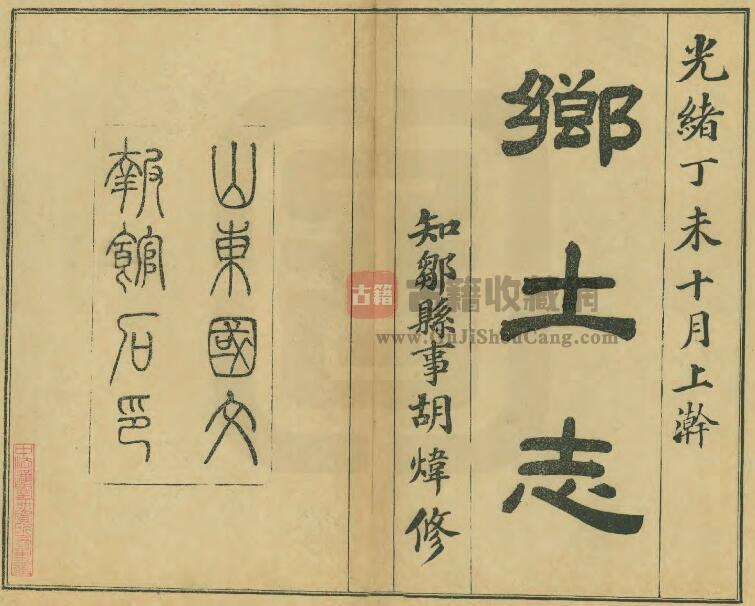 光緒丁未十月上澣
鄉土志
知鄒縣事胡煒修
山東國文
報館石印
古籍
古籍收藏網
www.GuJiShouCang.com